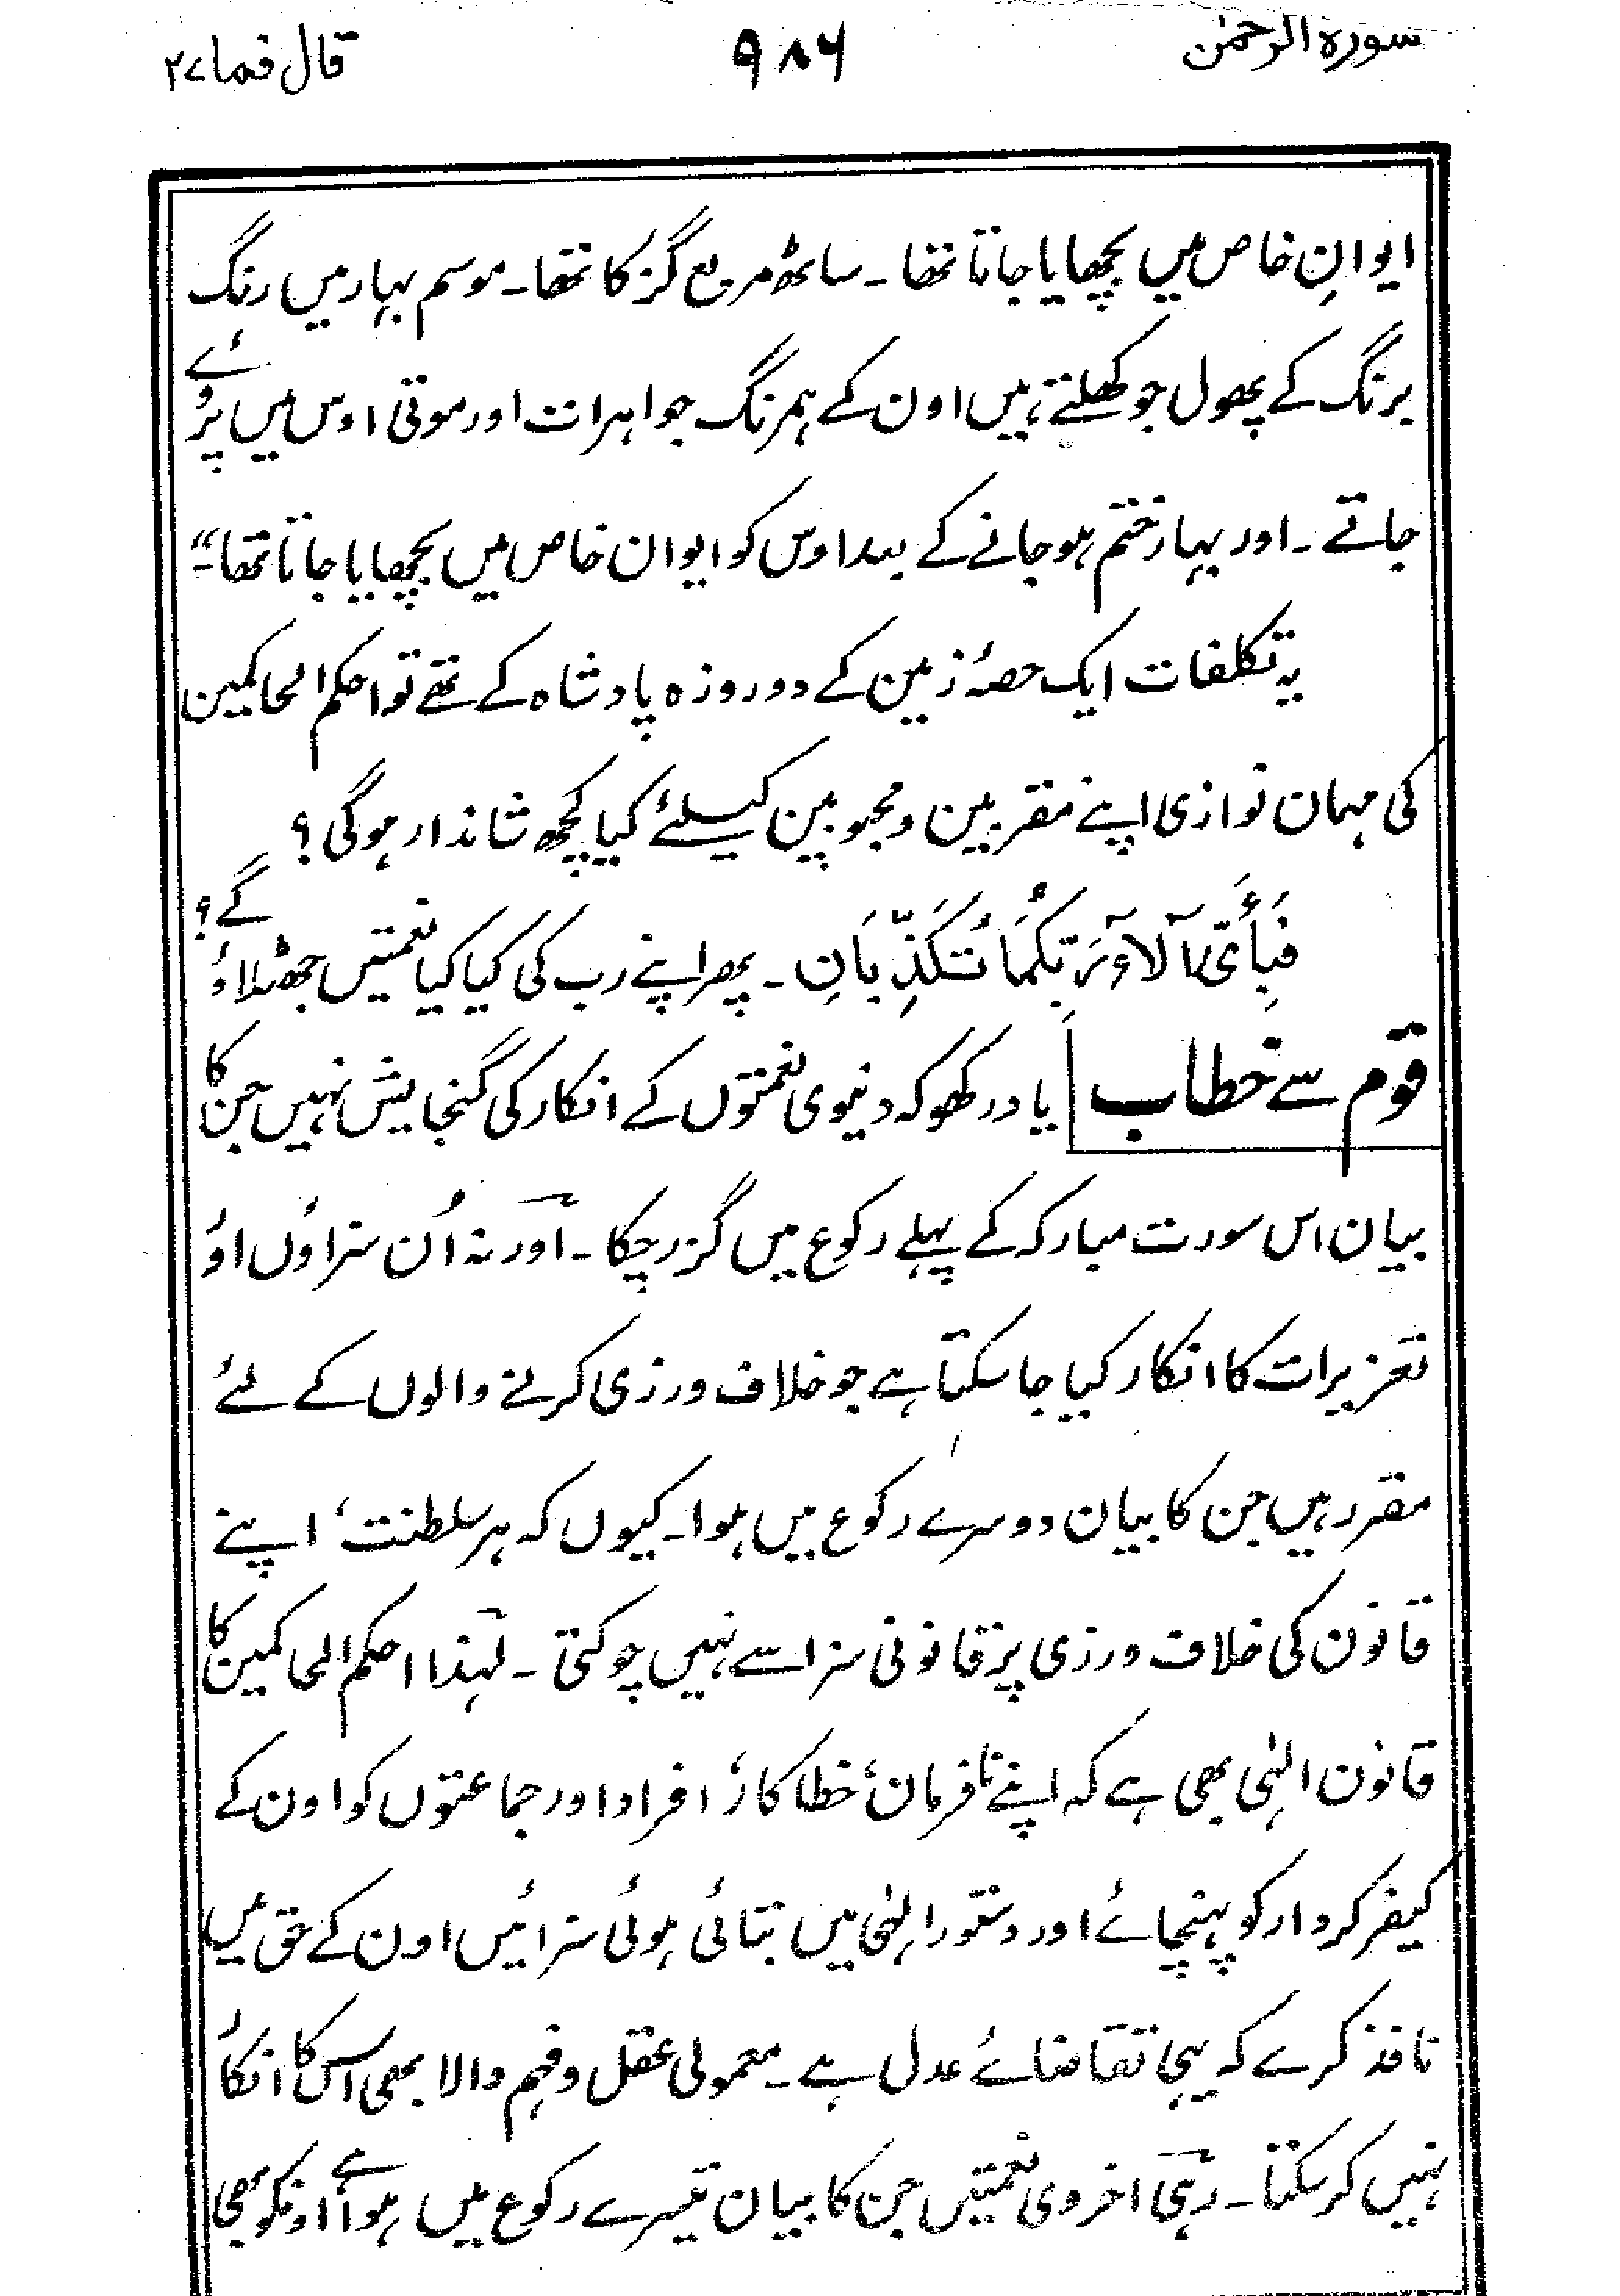 سورہ الرحمٰن ۹۸۶ قال فما ۲۷
ایوانِ خاص میں بچھایا جاتا تھا۔ ساٹھ مربع گز کا تھا۔ موسم بہار میں رنگ
برنگ کے پھول جو کھلتے ہیں اون کے ہمرنگ جواہرات اور موتی اوس میں پروئے
جاتے۔ اور بہار ختم ہو جانے کے بعد اوس کو ایوان خاص میں بچھایا جاتا تھا۔“
یہ تکلفات ایک حصۂ زمین کے دو روزہ پادشاہ کے تھے تو احکم الحاکمین
کی مہمان نوازی اپنے مقربین و محبوبین کیلئے کیا کچھ شاندار ہوگی؟
فَبِأَیِّ آلَآءِ رَبِّکُمَا تُکَذِّبَانِ۔ پھر اپنے رب کی کیا کیا نعمتیں جھٹلاؤ گے؟
قوم سے خطاب یاد رکھو کہ دنیوی نعمتوں کے انکار کی گنجایش نہیں جن کا
بیان اس سورت مبارکہ کے پہلے رکوع میں گزر چکا۔ اور نہ اُن سزاؤں اور
تعزیرات کا انکار کیا جا سکتا ہے جو خلاف ورزی کرنے والوں کے لئے
مقرر ہیں جن کا بیان دوسرے رکوع میں ہوا۔ کیوں کہ ہر سلطنت، اپنے
قانون کی خلاف ورزی پر قانونی سزا سے نہیں چوکتی۔ لہٰذا احکم الحاکمین کا
قانون الہٰی بھی ہے کہ اپنے نافرمان، خطاکار، افراد اور جماعتوں کو اون کے
کیفر کردار کو پہنچائے اور دستور الہٰی میں بتائی ہوئی سزائیں اون کے حق میں
نافذ کرے کہ یہی تقاضائے عدل ہے۔ معمولی عقل و فہم والا بھی اس کا انکار
نہیں کر سکتا۔ رہی اخروی نعمتیں جن کا بیان تیسرے رکوع میں ہوا ہے اونکو بھی